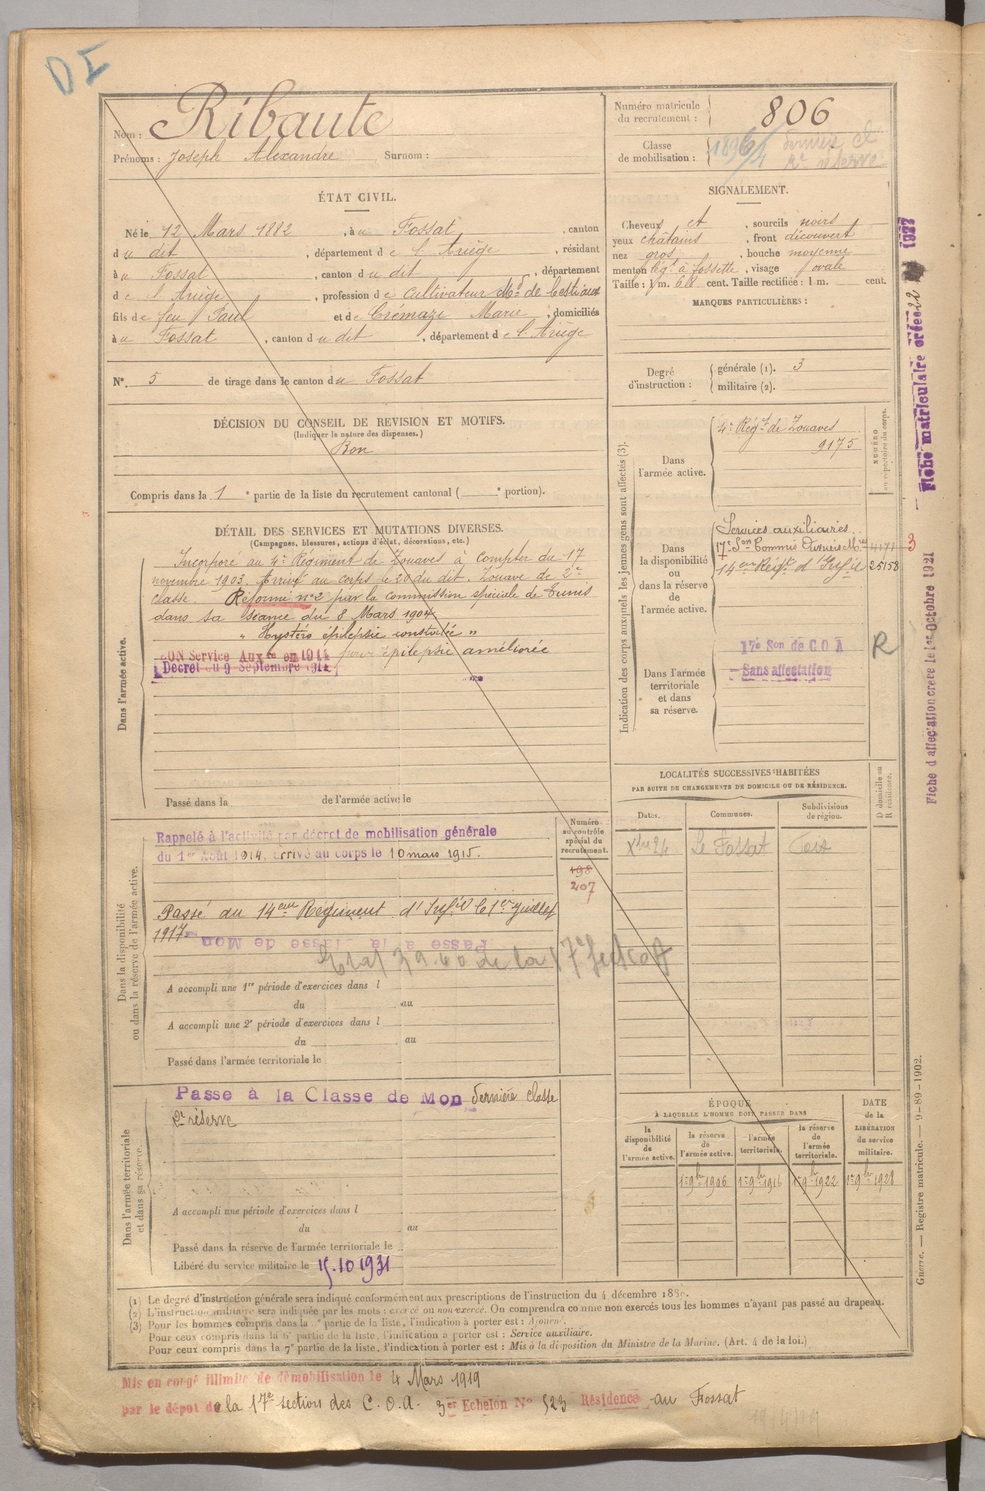 DI
Nom : Ribaute
Prénoms : Joseph Alexandre Surnom :
ÉTAT CIVIL.
Né le 12 Mars 1882, à u Fossat, canton
d u dit, département de l'Ariège, résidant
à u Fossat, canton d u dit, département
de l'Ariège, profession de Cultivateur Md de bestiaux
fils de feu Paul et de Cremazi Marie, domiciliés
à u Fossat, canton d u dit, département de l'Ariège
N° 5 de tirage dans le canton du Fossat
DÉCISION DU CONSEIL DE REVISION ET MOTIFS.
(Indiquer la nature des dispenses.)
Bon
Compris dans la 1e partie de la liste du recrutement cantonal ( e portion).
DÉTAIL DES SERVICES ET MUTATIONS DIVERSES.
(Campagnes, blessures, actions d'éclat, décorations, etc.)
Dans l'armée active.
Incorporé au 4e Régiment de Zouaves à compter du 17
novembre 1903. Arrivé au corps le 20 du dit. Zouave de 2e
classe. Réformé n°2 par la commission spéciale de Tunis
dans sa séance du 8 Mars 1904
" Hystéro épilepsie constatée "
BON Service Auxre en 1914 pour épilepsie améliorée
Décret du 9 Septembre 1914
Passé dans la de l'armée active le
Dans la disponibilité
ou dans la réserve de l'armée active.
Numéro
au contrôle
spécial du
recrutement.
198
207
Rappelé à l'activité par décret de mobilisation générale
du 1er Août 1914, arrivé au corps le 10 mars 1915.
Passé au 14eme Régiment d'Infie le 1er Juillet
1917
Passé à la classe de Mon
Etat 39.40 de la 17e
A accompli une 1re période d'exercices dans l
du au
A accompli une 2e période d'exercices dans l
du au
Passé dans l'armée territoriale le
Dans l'armée territoriale
et dans sa réserve.
Passe à la Classe de Mon dernière classe
2e réserve
A accompli une période d'exercices dans l
du au
Passé dans la réserve de l'armée territoriale le
Libéré du service militaire le 15.10.1931
Numéro matricule
du recrutement : 806
Classe
de mobilisation : 1896/4 dernière cl
2e réserve
SIGNALEMENT.
Cheveux et, sourcils noirs
yeux châtains, front découvert
nez gros, bouche moyenne
menton lég. à fossette, visage ovale
Taille : 1 m. 68 cent. Taille rectifiée : 1 m. cent.
MARQUES PARTICULIÈRES :
Degré
d'instruction :
générale (1). 3
militaire (2).
Indication des corps auxquels les jeunes gens sont affectés (3).
NUMÉRO
au répertoire du corps.
Dans
l'armée active.
4e Régt de Zouaves
9175
Dans
la disponibilité
ou
dans la réserve
de
l'armée active.
Services auxiliaires
17e Son Commis Ouvriers Mres 3
14eme Régt d'Infie 25158
Dans l'armée
territoriale
et dans
sa réserve.
17e Son de C O A R
Sans affectation
LOCALITÉS SUCCESSIVES HABITÉES
PAR SUITE DE CHANGEMENTS DE DOMICILE OU DE RÉSIDENCE.
Dates. Communes. Subdivisions
de région. D domicile ou
R résidence.
Xbre 24 Le Fossat Foix
ÉPOQUE
À LAQUELLE L'HOMME DOIT PASSER DANS
DATE
de la
LIBÉRATION
du service
militaire.
la
disponibilité
de
l'armée active.
la réserve
de
l'armée active.
l'armée
territoriale.
la réserve
de
l'armée
territoriale.
1er 9bre 1906 1er 9bre 1916 1er 9bre 1922 1er 9bre 1928
(1) Le degré d'instruction générale sera indiqué conformément aux prescriptions de l'instruction du 4 décembre 1889.
(2) L'instruction militaire sera indiquée par les mots : exercé ou non exercé. On comprendra comme non exercés tous les hommes n'ayant pas passé au drapeau.
(3) Pour les hommes compris dans la partie de la liste, l'indication à porter est : Ajourné.
Pour ceux compris dans la 6e partie de la liste, l'indication à porter est : Service auxiliaire.
Pour ceux compris dans la 7e partie de la liste, l'indication à porter est : Mis à la disposition du Ministre de la Marine. (Art. 4 de la loi.)
Mis en congé illimité de démobilisation le 4 Mars 1919
par le dépôt de la 17e section des C.O.A. 3er Echelon N° 523 Résidence au Fossat
Fiche matriculaire créée 1927
Fiche d'affectation créée le 1er Octobre 1921
Guerre. — Registre matricule. — 9-89-1902.